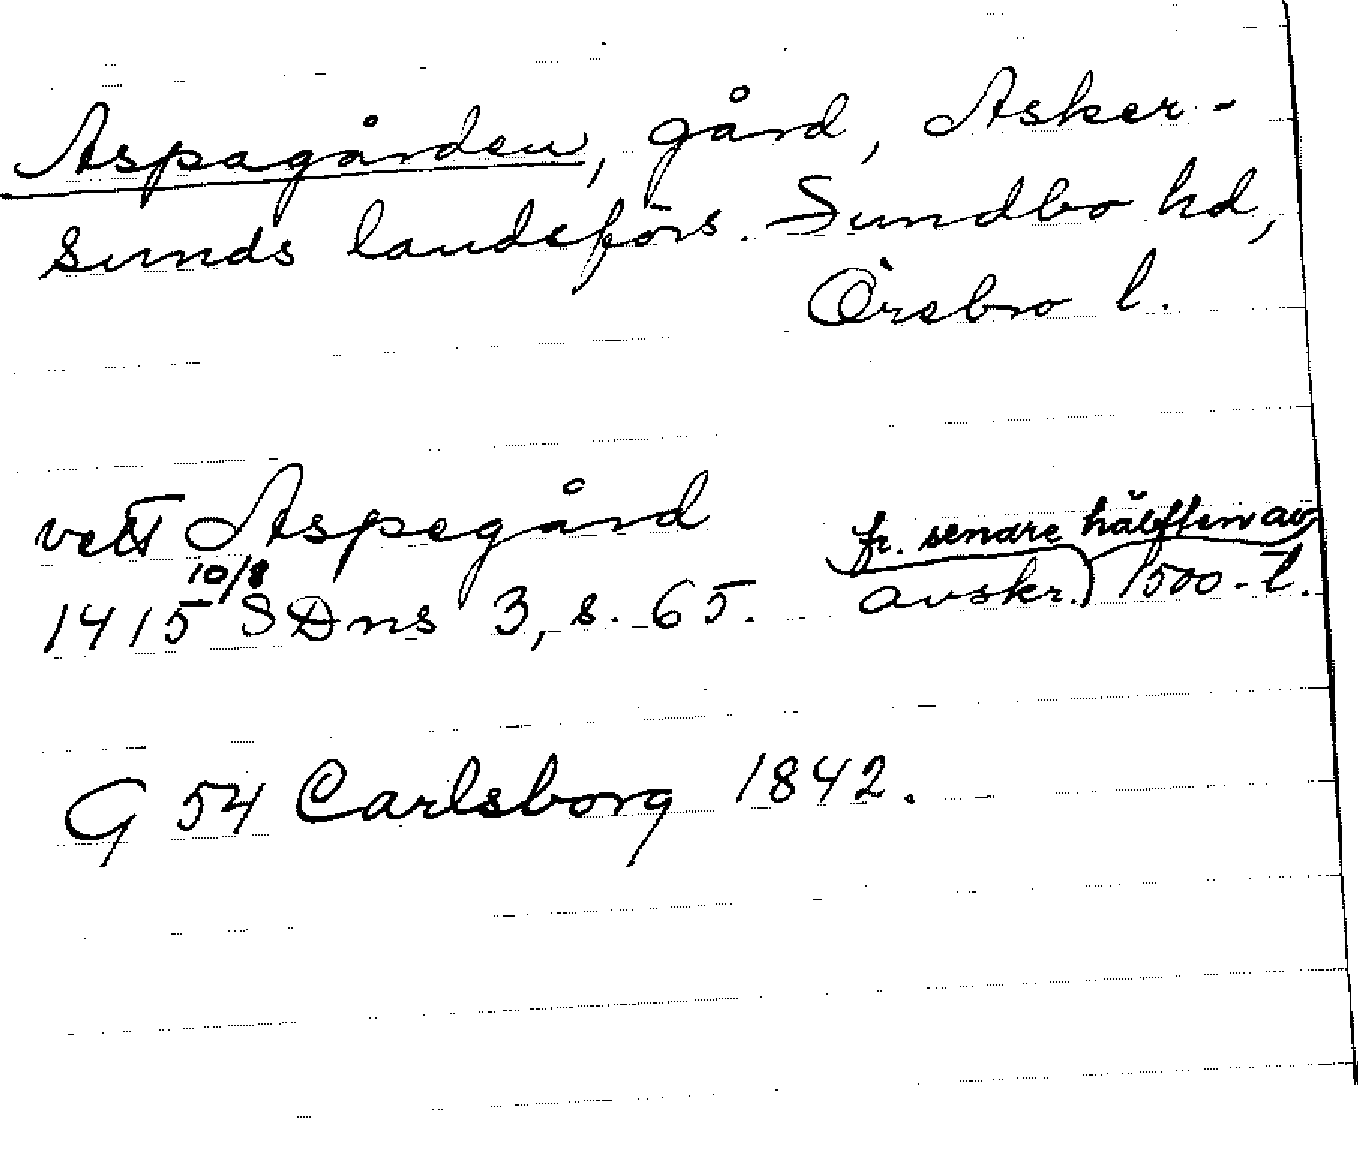 Aspagården, gård, Asker-
sunds landsförs. Sundbo hd,
Örebro l.
vetT Aspegård
1415 10/8 SDns 3, s. 65. avskr.) fr. senare hälften av 1500-t.
G 54 Carlsborg 1842.